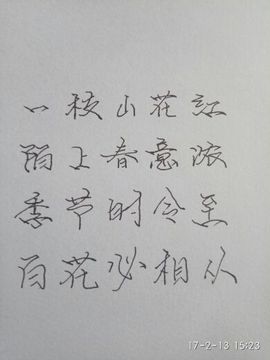 一枝山花红
陌上春意浓
季节时令至
百花必相从
17-2-13 15:23